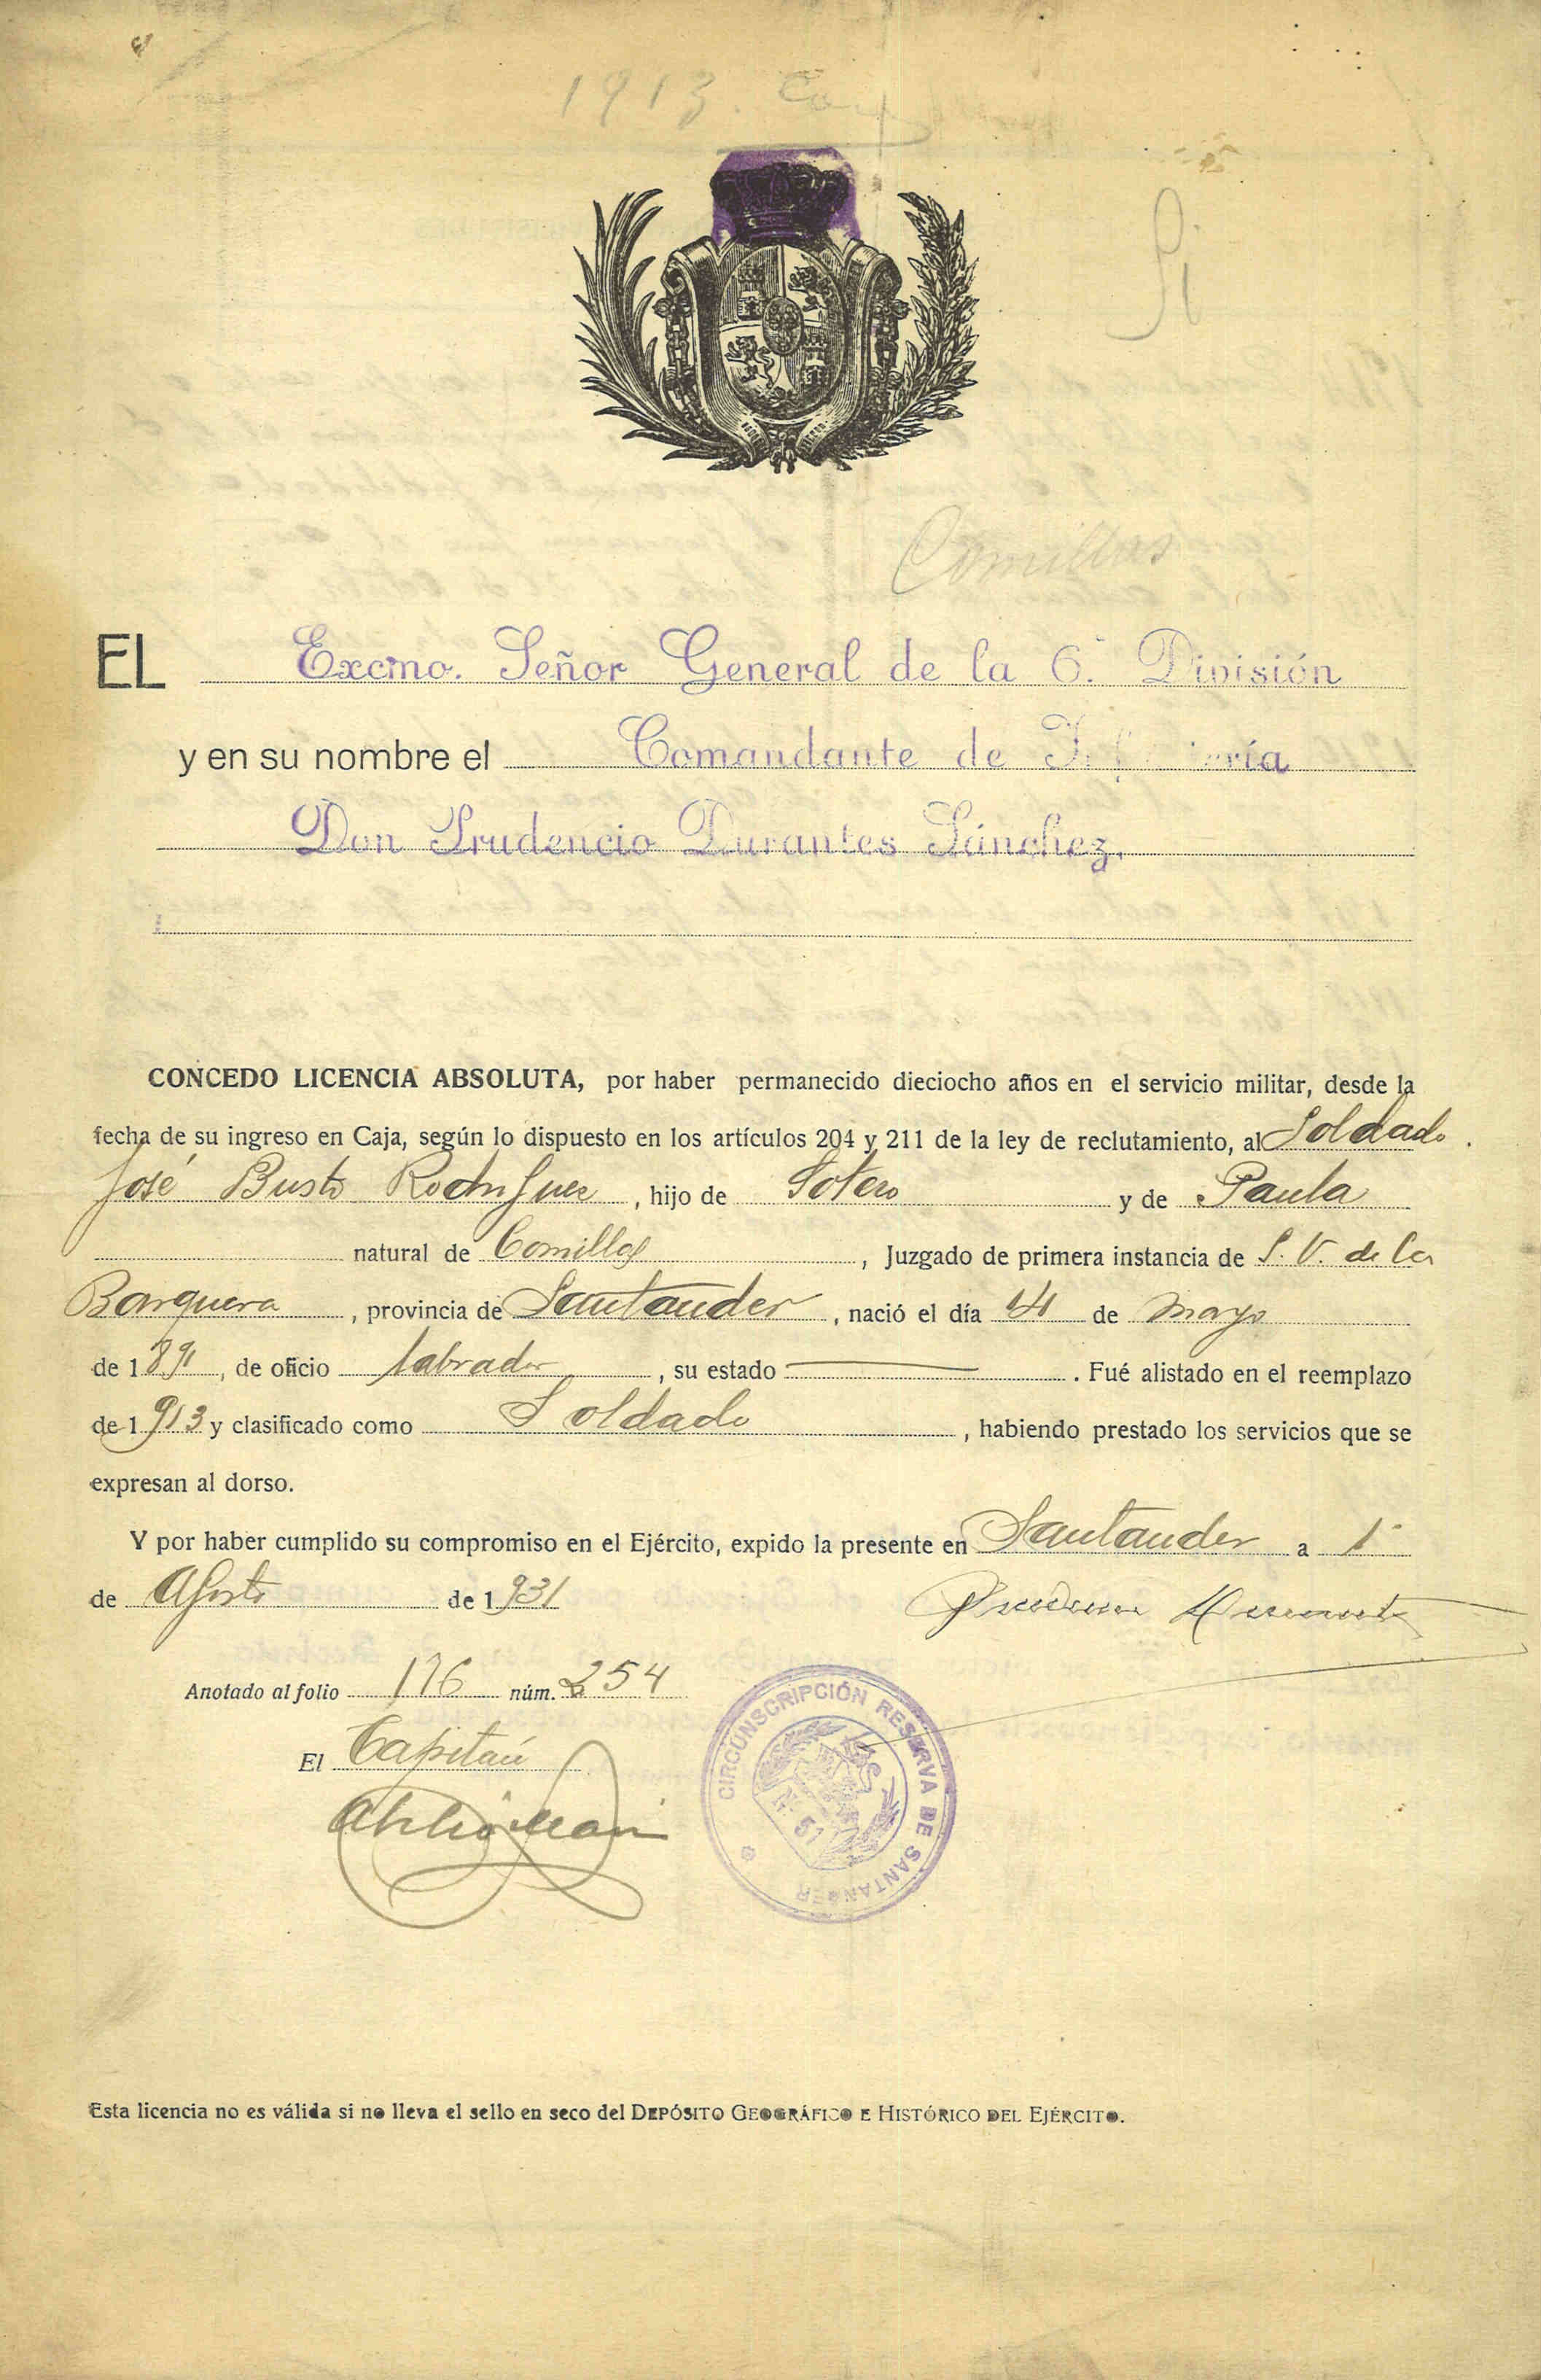 1913.
Si
Comillas
EL Excmo. Señor General de la 6.ª División
y en su nombre el Comandante de Infantería
Don Prudencio Durantes Sánchez.
CONCEDO LICENCIA ABSOLUTA, por haber permanecido dieciocho años en el servicio militar, desde la
fecha de su ingreso en Caja, según lo dispuesto en los artículos 204 y 211 de la ley de reclutamiento, al Soldado
José Busto Rodriguez, hijo de Sotero y de Paula
natural de Comillas, Juzgado de primera instancia de S. V. de la
Barquera, provincia de Santander, nació el día 14 de Mayo
de 1891, de oficio labrador, su estado. Fué alistado en el reemplazo
de 1913 y clasificado como Soldado, habiendo prestado los servicios que se
expresan al dorso.
Y por haber cumplido su compromiso en el Ejército, expido la presente en Santander a 1º
de Agosto de 1931
Anotado al folio 176 núm. 254
El Capitán
CIRCUNSCRIPCIÓN RESERVA DE SANTANDER
Nº 51
Esta licencia no es válida si no lleva el sello en seco del DEPÓSITO GEOGRÁFICO E HISTÓRICO DEL EJÉRCITO.